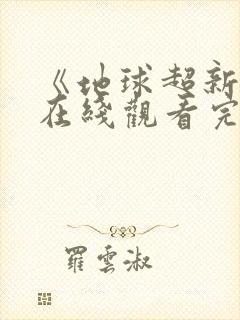 《地球超新
在綫觀看完
羅雲淑